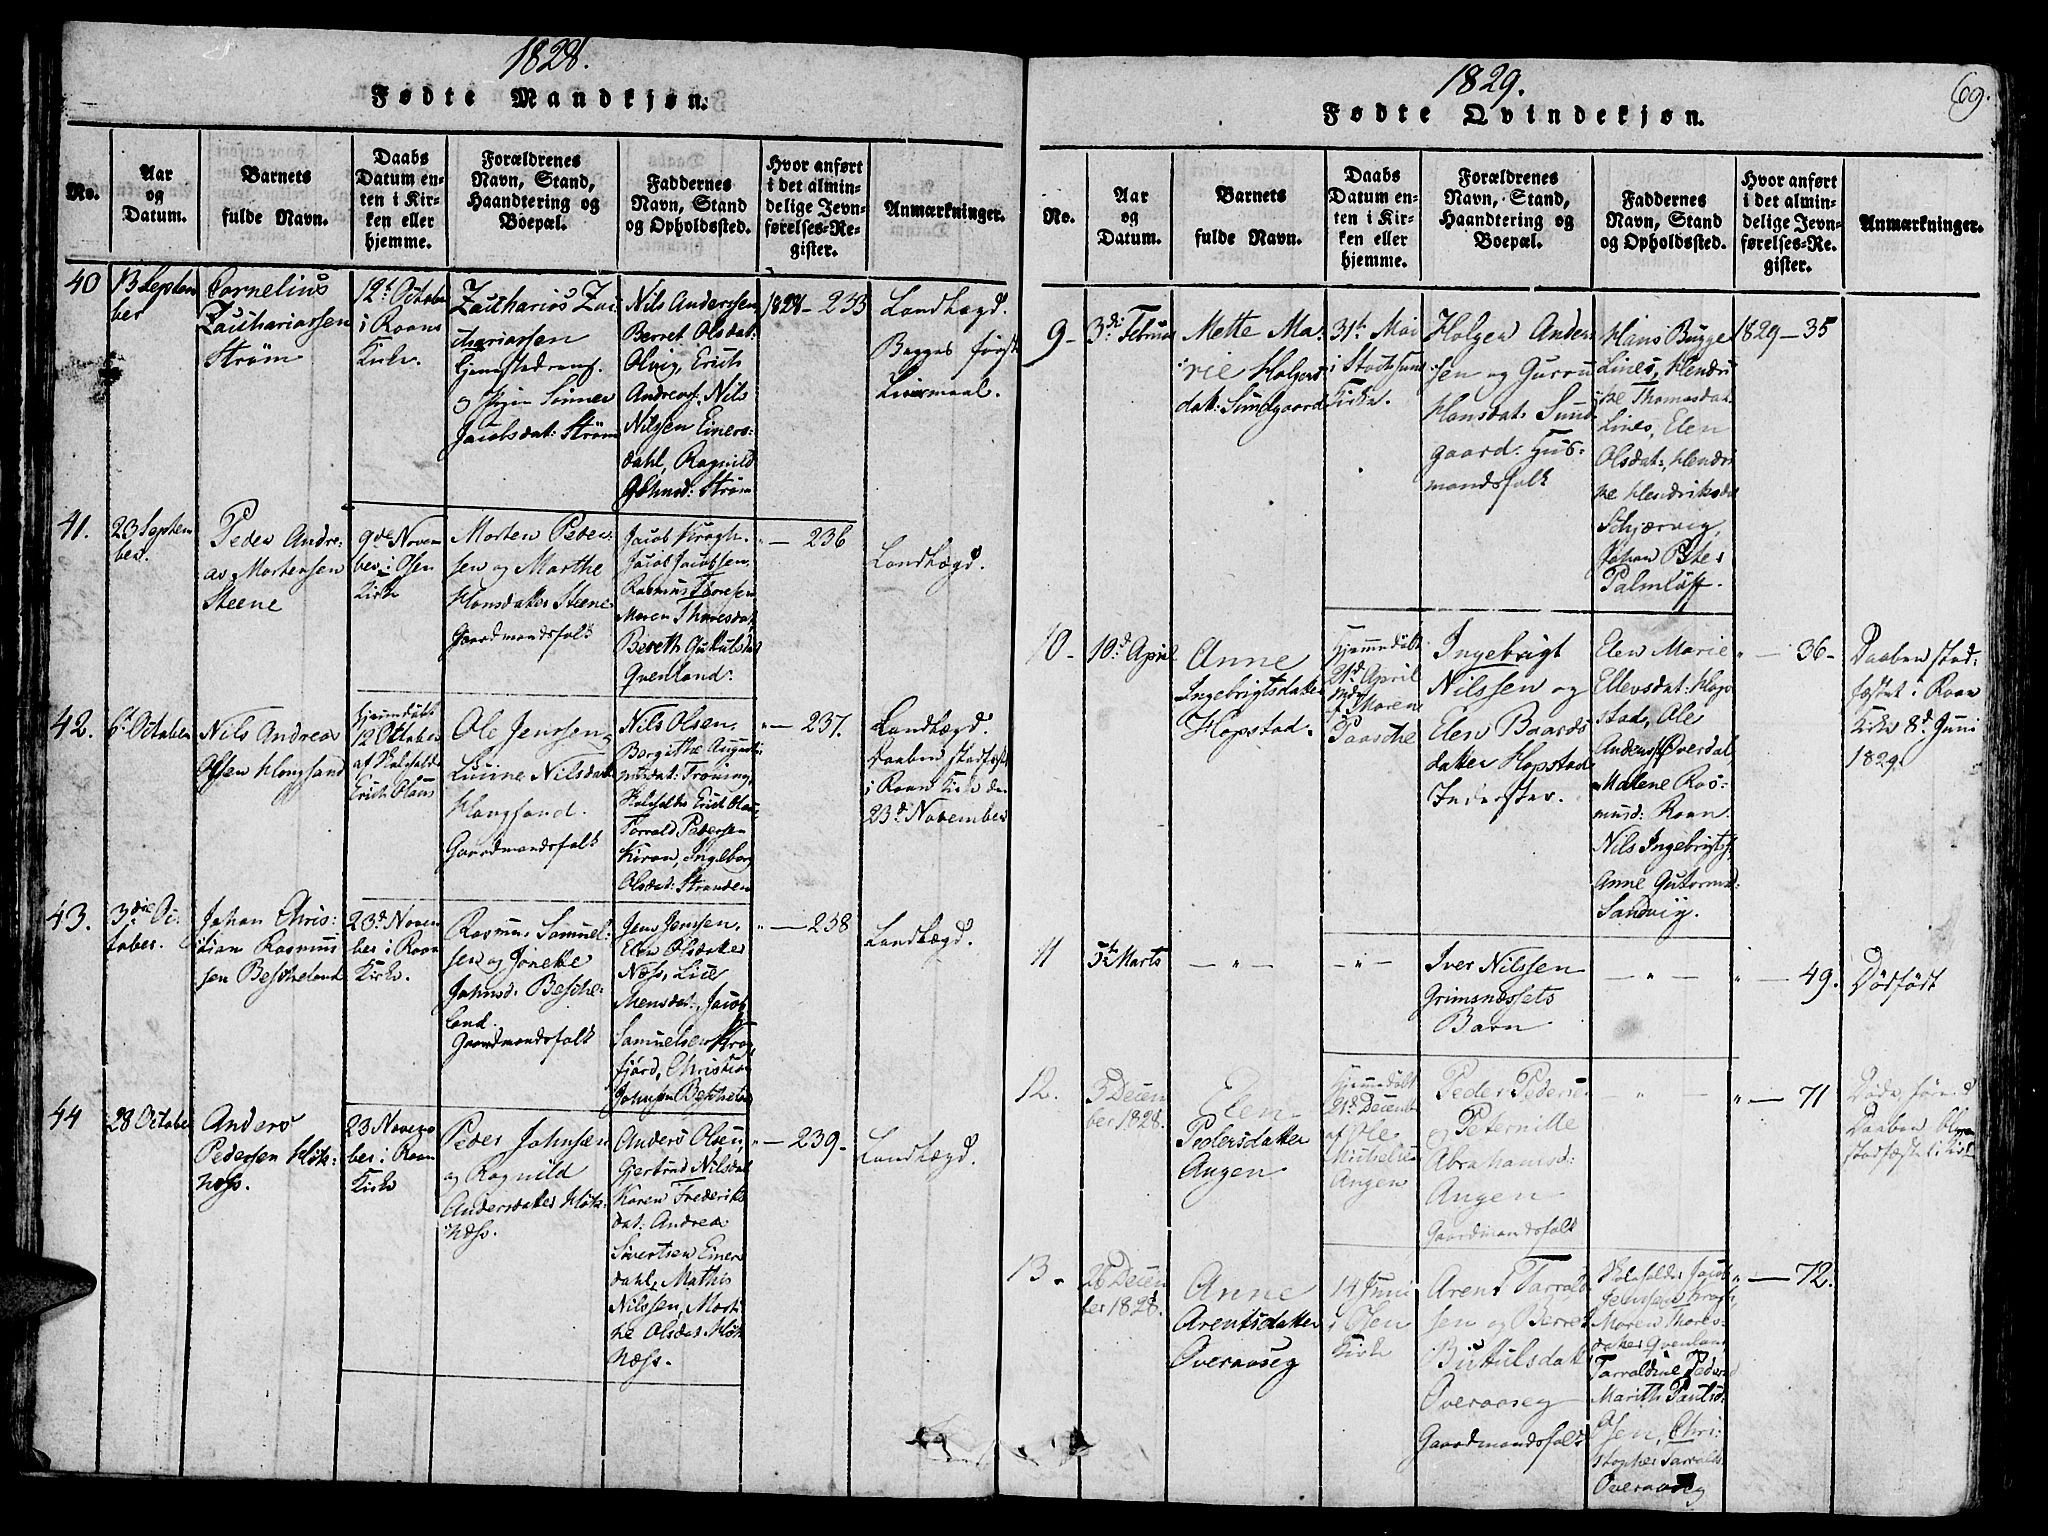 1828.
Fødte Mandkjøn.
No.
Aar
og
Datum.
Barnets
fulde Navn.
Daabs
Datum en-
ten i Kir-
ken eller
hjemme.
Forældrenes
Navn, Stand,
Haandtering og
Boepæl.
Faddernes
Navn, Stand
og Opholdssted.
Hvor anført
i det almin-
delige Jevn-
førelses-Re-
gister.
Anmærkninger.
40
13 Septem
ber
Cornelius
Zachariassen
Strøm
12te Octobr
i Roans
Kirke.
Zacharias Za
chariassen
og
Jacobsdat: Strøm
Nils Anderssen
Berret Olsdat:
Erich
Andreas: Nils
Nilsen Einers:
dahl, Ragnild
Strøm
1828 - 235
Landhægd.
41.
23 Septem
ber.
Peder Andre:
as Mortensen
Steene
9de Novem
ber i Osen
Kirke
Morten Peder
sen og Marthe
Hansdatter Steene
Gaardmandsfolk
Jacob Kragh.
Jacob Jacobsen,
Rasmus Thoresen
Maren Thoresdat
Bereth
Qvenland.
" - 236
Landhægd.
42.
6te October
Nils Andreas
Olsen Hongsand
Hjemdøbt
12 October
af
Erich Olaus
Ole Jenssen og
Nilsdatt
Hongsand.
Gaardmandsfolk
Nils Olsen,
Torrald Pedersen
Kiran, Ingeborg
Olsdat: Stranden
" - 237.
Landhægd.
Daaben stadfæst
i Roan Kirke den
23d November
43.
3die Oc:
tober.
Johan Chris:
tian Rasmus
sen Bescheland
23d Novem
ber i Roan
Kirke.
Rasmus Samuel:
sen og Jonette
Johnsd: Besche:
land.
Gaardmandsfolk
Jens Jenssen,
Elen Olsdatter
Næss,
Jacob
Samuelsen Krog
fjord, Christian
Johnsen Beschelan
" - 238
Landhægd.
44
28 October
Anders
Pedersen Høk:
næss.
23 Novem
ber i Roan
Kirke
Peder Johnsen
og Ragnild
Andersdatter Høk:
næss.
Anders Olsen,
Gjertrud Nilsdat
Karen Frederiks
dat: Andrea
Sivertsen Einers
dahl, Mathis
Nilssen, Mart:
he Olsdat Høk
næss.
" - 239 -
Landhægd.
1829.
69.
Fødte Qvindekjøn.
No.
Aar
og
Datum.
Barnets
fulde Navn.
Daabs
Datum en-
ten i Kir-
ken eller
hjemme.
Forældrenes
Navn, Stand,
Haandtering og
Boepæl.
Faddernes
Navn, Stand
og Opholdssted.
Hvor anført
i det almin-
delige Jevn-
førelses-Re-
gister.
Anmærkninger.
9 -
3di Februar
Mette Ma:
rie Holgers
dat: Sundgaard
31te Mai
i Stocksund
Kirke.
Holger Ander
sen og Gurru
Hansdat: Sund
gaard. Huus:
mandsfolk
Hans Bugge
Lines, Hendri
ke Thomasdat:
Lines, Elen
Olsdat:, Hendri
ke Hendriksdat
Schjærvig,
Johan Peter
Palmlöff.
1829 - 35
10 -
10d April
Anne
Ingebrigtsdatter
Hopstad.
Hjemmedøbt
21d April
Paasche
Ingebrigt
Nilssen og
Elen Baards
datter Hopstad
Inderster.
Elen Marie
Ellevsdat: Hop
stad, Ole
Anderss: Overdal
Malene Ras:
musd: Roan.
Nils Ingebrigtss.
Anne Guttorms:
Sandvig.
" - 36 -
Daaben stad:
fæstet i Roan
Kirke 8d Juni
1829.
11
5te Marts
- " -
- " -
Iver Nilssen
Grimsnæssets
Barn
- " -
" - 49.
Dødfødt
12.
3 Decem
ber 1828.
Elen
Pedersdatter
Angen
Hjemmedøbt
21d Decemb
af Ole
Michelsen
Angen
Peder Pederse
og Peternille
Abrahamsd:
Angen
Gaardmandsfolk
- " -
" - 71
Døde, før end
Daaben blev
stadfæstet i Kirk
13.
26 Decem
ber 1828.
Anne
Arentsdatter
Overaaseg
14 Juni
i Osen
Kirke
Arent Tarrald
sen og Berret
Overaaseg
Gaardmandsfolk
Jacob
Jenssen Kragh,
Maren Thores:
datter Qvenland,
Tarraldine Peder
Marith Paulsd:
Osen, Chri:
stopher Tarralds
Overaaseg
" - 72.